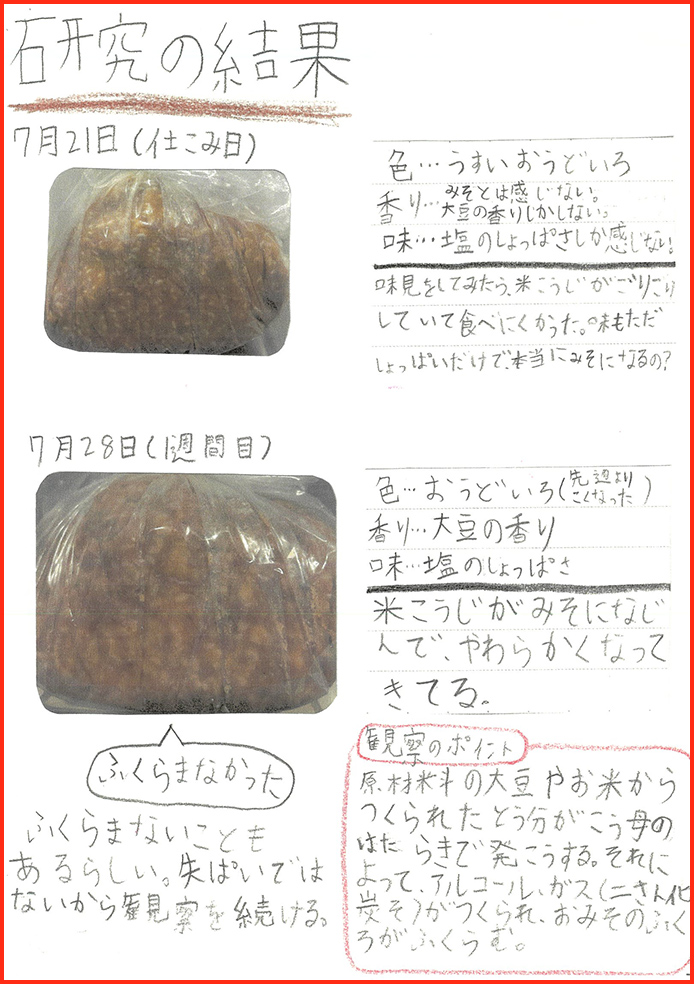 研究の結果
7月21日(仕こみ日)
色…うすいおうどいろ
香り…みそとは感じない。
大豆の香りしかしない。
味…塩のしょっぱさしか感じない。
味見をしてみたら、米こうじがごりごり
していて食べにくかった。味もただ
しょっぱいだけで、本当にみそになるの?
7月28日(1週間目)
色…おうどいろ(先週より
こくなった)
香り…大豆の香り
味…塩のしょっぱさ
米こうじがみそになじ
んで、やわらかくなって
きてる。
ふくらまなかった
ふくらまないことも
あるらしい。失ぱいでは
ないから観察を続ける。
観察のポイント
原材料の大豆やお米から
つくられたとう分がこう母の
はたらきで発こうする。それに
よって、アルコール、ガス(二さん化
炭そ)がつくられ、おみそのふく
ろがふくらむ。